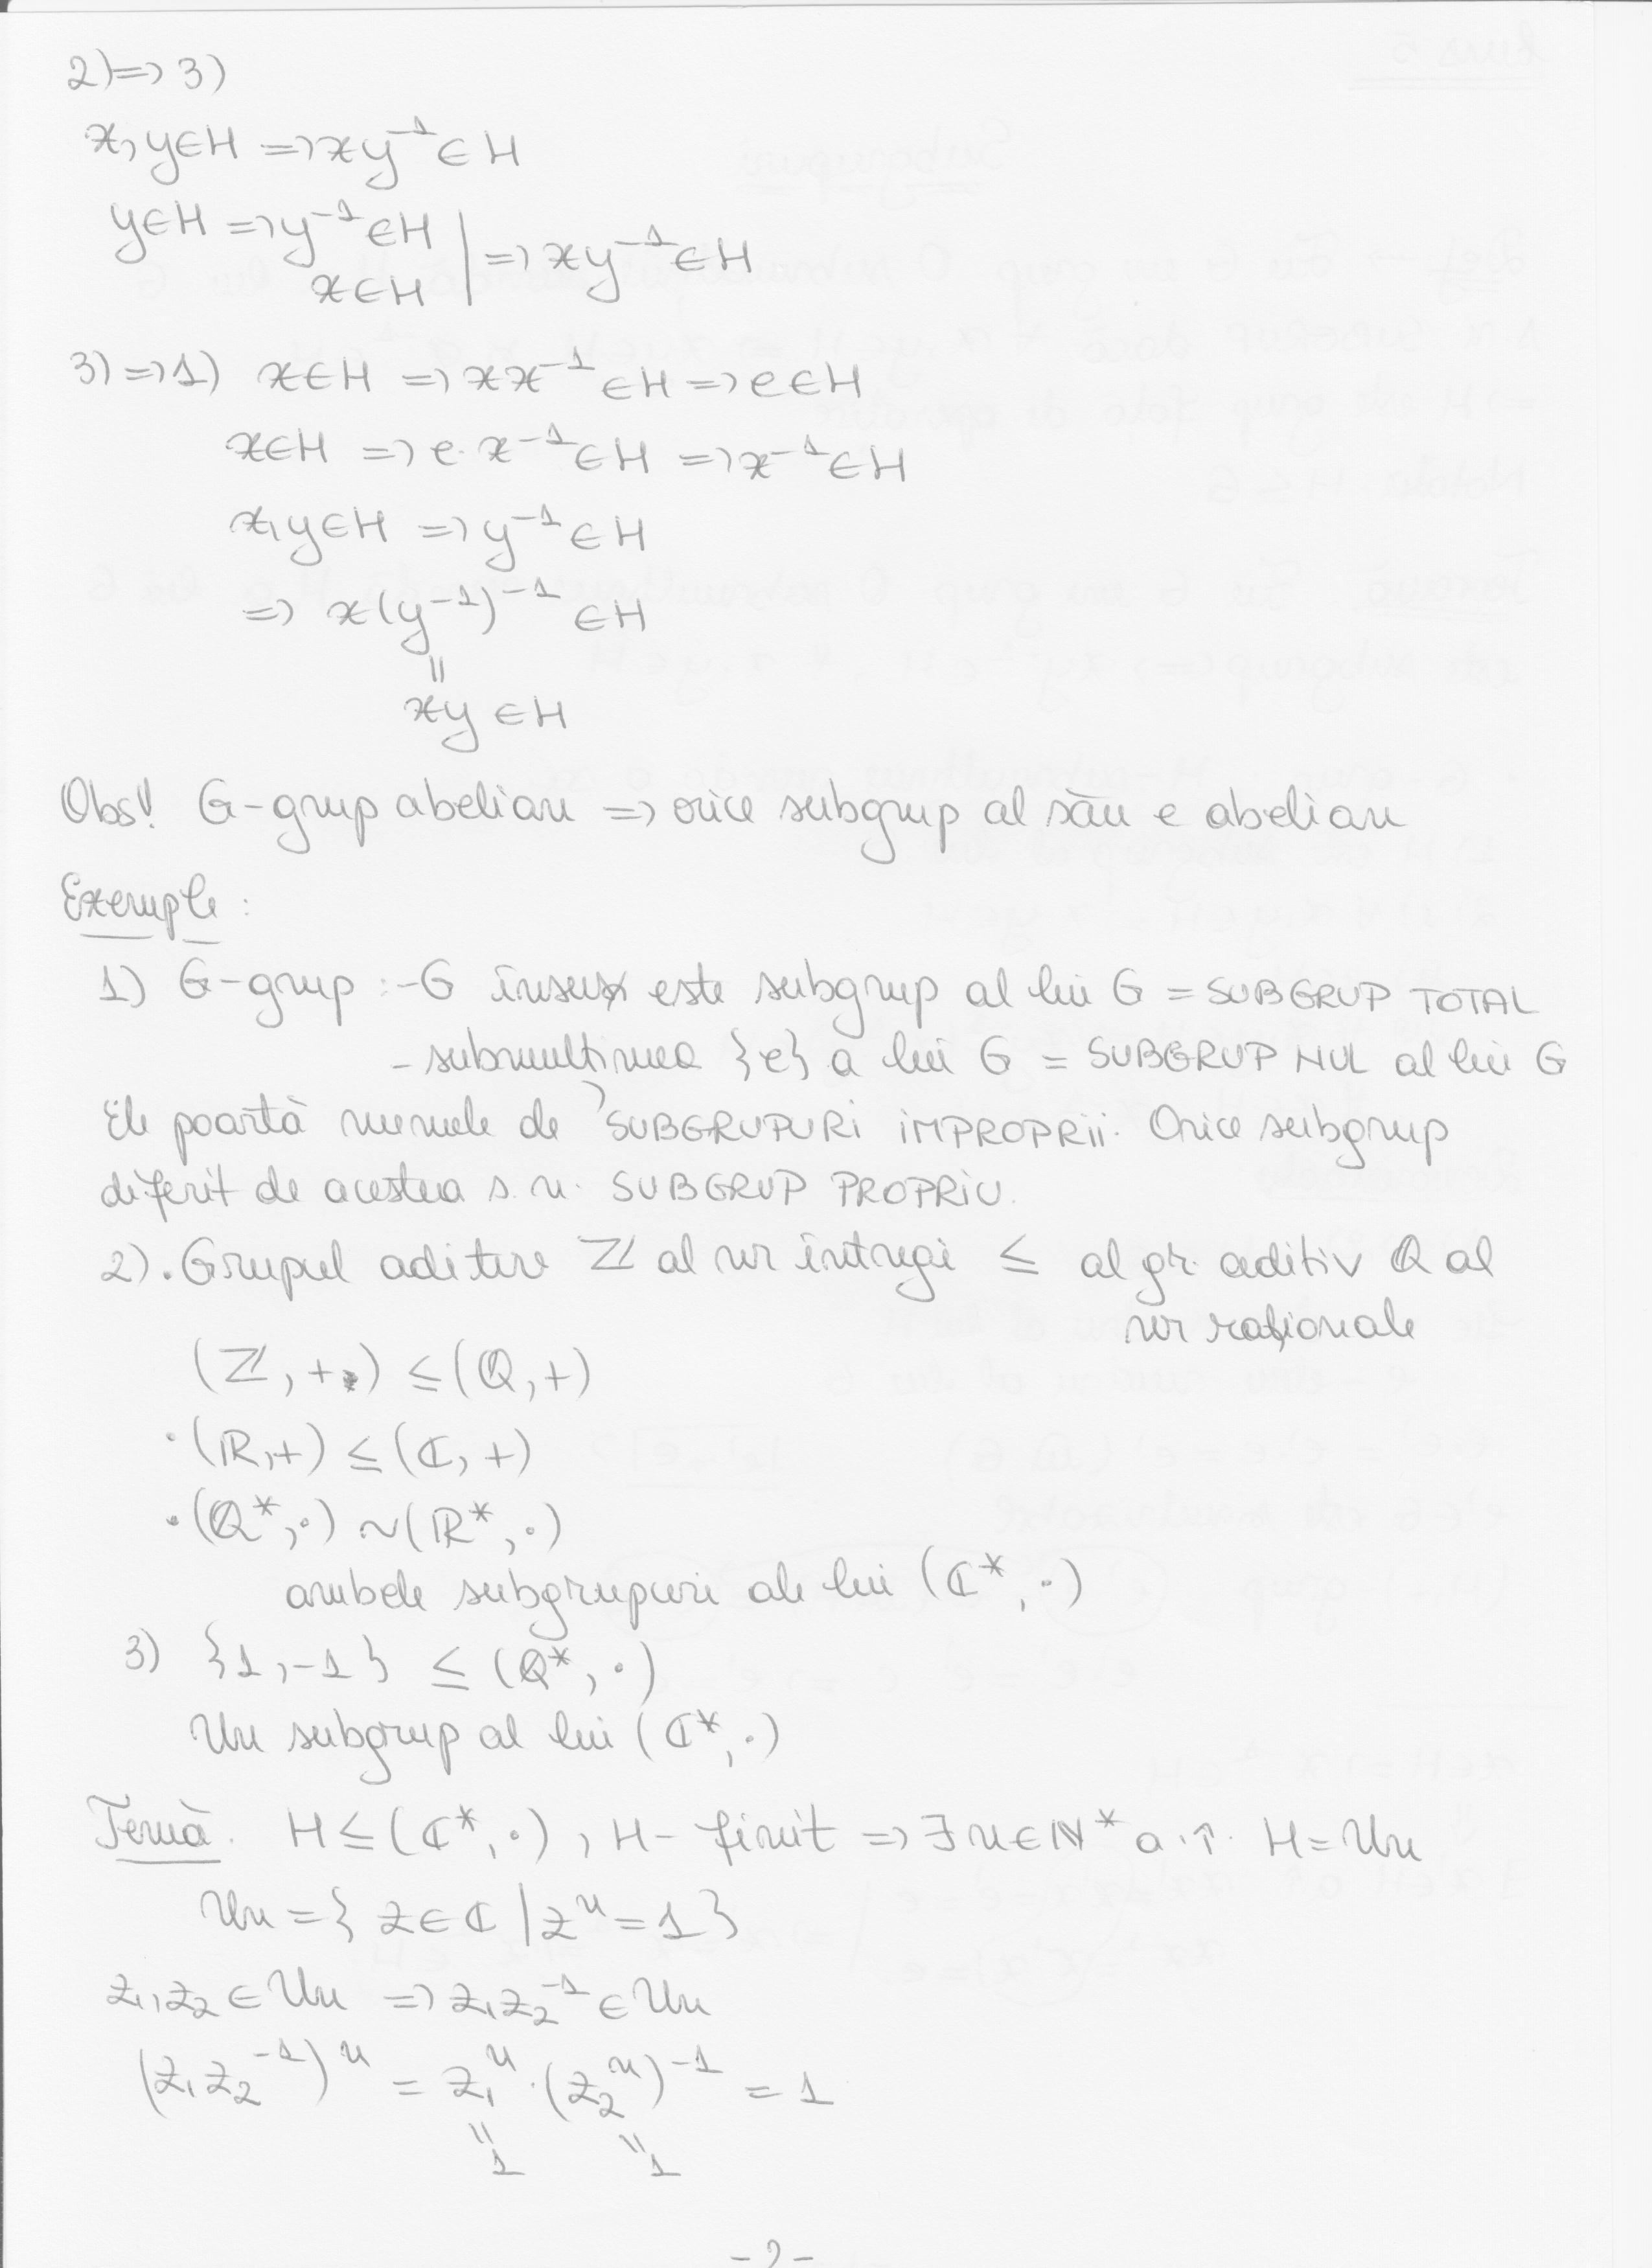 2) => 3)
x, y ∈ H => xy⁻¹ ∈ H
y ∈ H => y⁻¹ ∈ H
x ∈ H | => xy⁻¹ ∈ H
3) => 1) x ∈ H => xx⁻¹ ∈ H => e ∈ H
x ∈ H => e·x⁻¹ ∈ H => x⁻¹ ∈ H
x, y ∈ H => y⁻¹ ∈ H
=> x(y⁻¹)⁻¹ ∈ H
=
xy ∈ H
Obs! G-grup abelian => orice subgrup al său e abelian
Exemple:
1) G-grup : - G însuși este subgrup al lui G = SUBGRUP TOTAL
- submulțimea {e} a lui G = SUBGRUP NUL al lui G
Ele poartă numele de SUBGRUPURI IMPROPRII. Orice subgrup
diferit de acestea s.n. SUBGRUP PROPRIU.
2). Grupul aditiv ℤ al nr întregi ≤ al gr. aditiv ℚ al
nr raționale
(ℤ, +) ≤ (ℚ, +)
· (ℝ, +) ≤ (ℂ, +)
· (ℚ*, ·) ~ (ℝ*, ·)
ambele subgrupuri ale lui (ℂ*, ·)
3) {1, -1} ≤ (ℚ*, ·)
Un subgrup al lui (ℂ*, ·)
Temă. H ≤ (ℂ*, ·), H - finit => ∃ n ∈ ℕ* a.î. H = Un
Un = { z ∈ ℂ | zⁿ = 1 }
z₁, z₂ ∈ Un => z₁z₂⁻¹ ∈ Un
(z₁z₂⁻¹)ⁿ = z₁ⁿ · (z₂ⁿ)⁻¹ = 1
= =
1 1
-2-